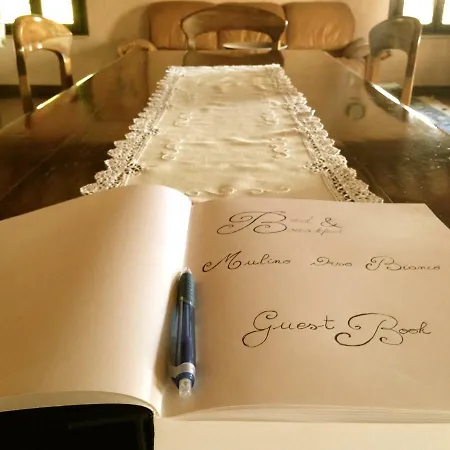 Bed &
Breakfast
Mulino Orso Bianco
Guest Book